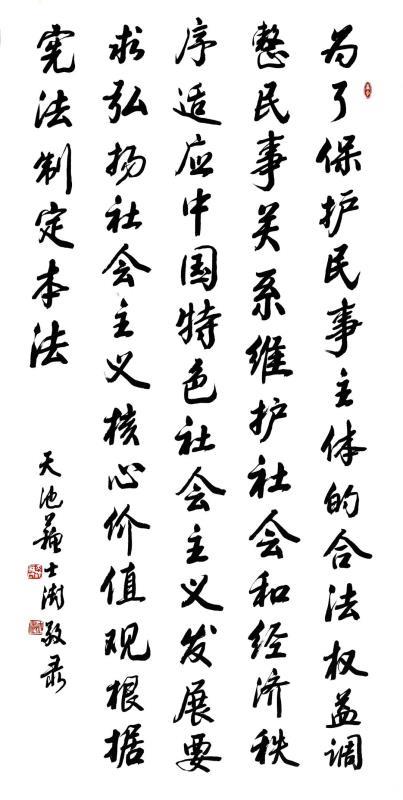 为了保护民事主体的合法权益调
整民事关系维护社会和经济秩
序适应中国特色社会主义发展要
求弘扬社会主义核心价值观根据
宪法制定本法
天池苏士澍敬录